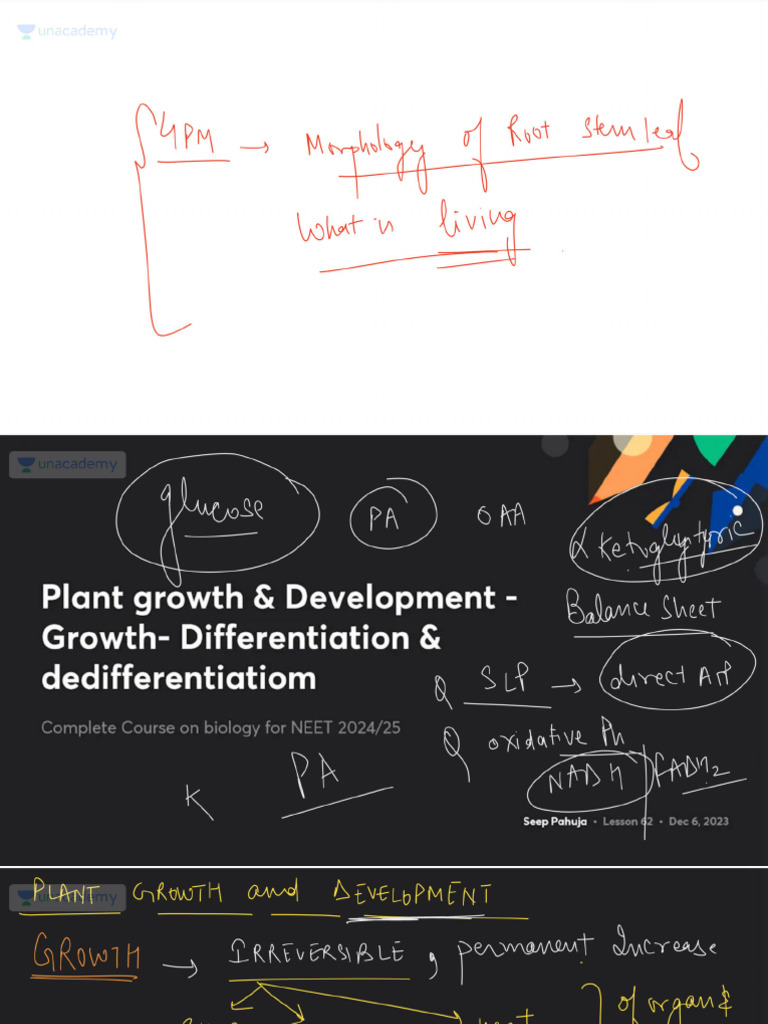 unacademy
4PM → Morphology of Root stem leaf
What is living
unacademy
glucose PA OAA
α Ketoglutaric
Plant growth & Development -
Balance Sheet
Growth- Differentiation &
dedifferentiatiom
Q SLP → direct ATP
Complete Course on biology for NEET 2024/25
Q oxidative Ph
PA
NADH FADH2
K
Seep Pahuja • Lesson 62 • Dec 6, 2023
unacademy
PLANT GROWTH and DEVELOPMENT
GROWTH → IRREVERSIBLE, permanent Increase
of organ &